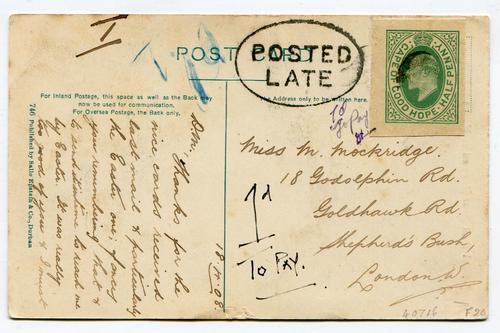 POST CARD
POSTED
LATE
CAPE OF GOOD HOPE · HALF-PENNY
For Inland Postage, this space as well as the Back may
now be used for communication.
For Oversea Postage, the Back only.
The Address only to be written here.
746 Published by Sallo Epstein & Co., Durban
18/4/08.
Thanks for the
nice cards received
last mail & particularly
the Easter one; fancy
you remembering that &
to send it in time to reach me
by Easter. It was really
too good of you & I must
To
Pay
Miss M. Mockridge.
18 Godolphin Rd.
Goldhawk Rd.
Shepherd's Bush,
London W.
1d
To Pay.
40716
F20